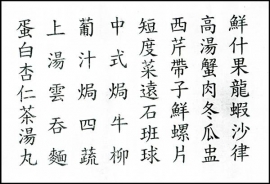 鮮什果龍蝦沙律
高湯蟹肉冬瓜盅
西芹帶子鮮螺片
短度菜遠石班球
中式焗牛柳
葡汁焗四蔬
上湯雲吞麵
蛋白杏仁茶湯丸